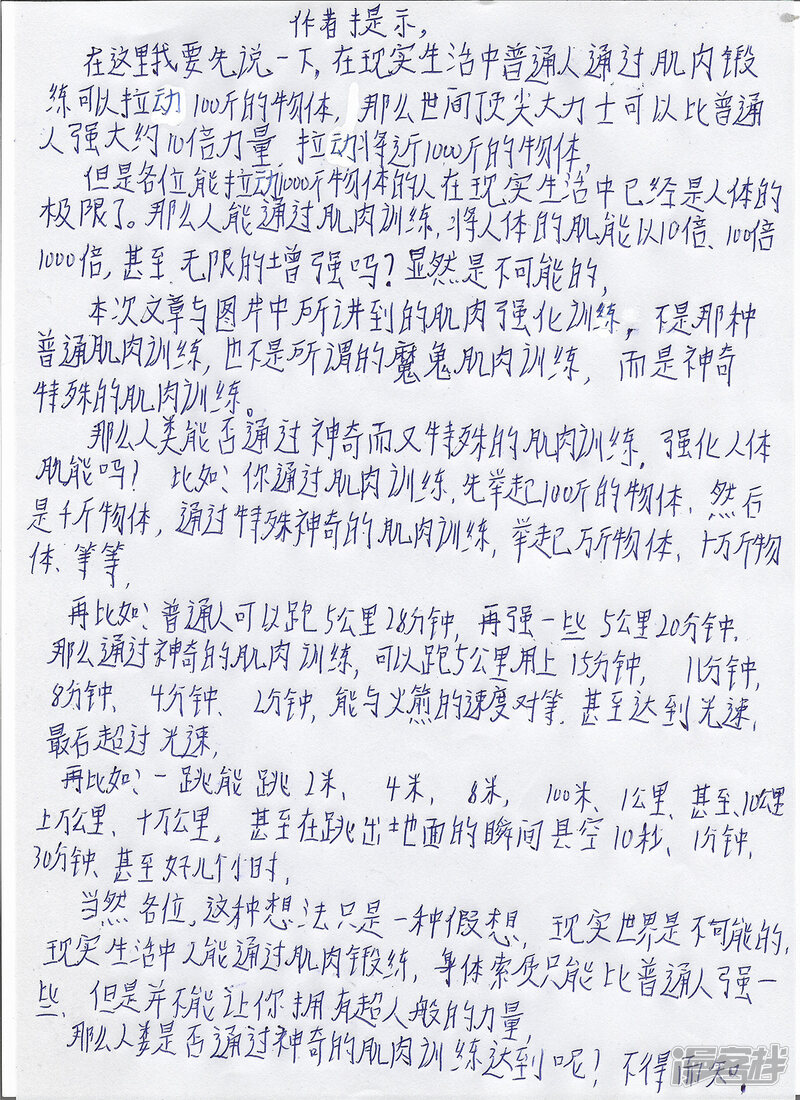 作者提示,
在这里我要先说一下,在现实生活中普通人通过肌肉锻
练可以拉动100斤的物体,那么世间顶尖大力士可以比普通
人强大约10倍力量,拉动将近1000斤的物体,
但是各位,能拉动1000斤物体的人在现实生活中已经是人体的
极限了。那么人能通过肌肉训练,将人体的肌能以10倍、100倍
1000倍,甚至无限的增强吗?显然是不可能的,
本次文章与图片中所讲到的肌肉强化训练,不是那种
普通肌肉训练,也不是所谓的魔鬼肌肉训练,而是神奇
特殊的肌肉训练。
那么人类能否通过神奇而又特殊的肌肉训练,强化人体
肌能吗?比如、你通过肌肉训练,先举起100斤的物体、然后
是千斤物体,通过特殊神奇的肌肉训练,举起万斤物体、十万斤物
体、等等,
再比如、普通人可以跑5公里28分钟,再强一些5公里20分钟.
那么通过神奇的肌肉训练,可以跑5公里用上15分钟,11分钟,
8分钟、4分钟、2分钟,能与火箭的速度对等.甚至达到光速,
最后超过光速,
再比如、一跳能跳2米、4米,8米,100米、1公里、甚至、10公里
上万公里、十万公里,甚至在跳出地面的瞬间悬空10秒、1分钟,
30分钟、甚至好几个小时,
当然各位,这种想法只是一种假想,现实世界是不可能的,
现实生活中人能通过肌肉锻练,身体素质只能比普通人强一
些、但是并不能让你拥有超人般的力量,
那么人类是否通过神奇的肌肉训练达到呢?不得而知.
漫客栈